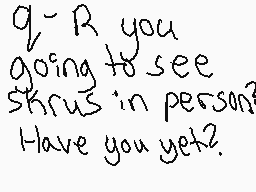 q- R you
going to see
skrus in person?
Have you yet?